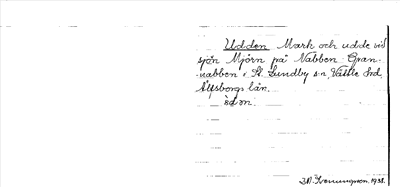 Udden Mark och udde vid
sjön Mjörn på Nabben Gran-
nabben i St. Lundby s:n, Vättle hd,
Älfsborgs län.
ùdən.
1938.